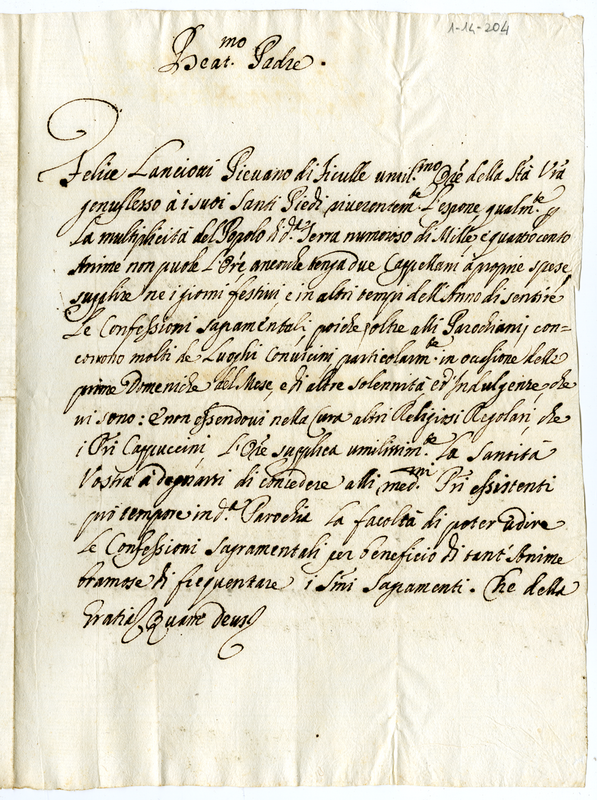 1-14-204
Beat.mo Padre.
Felice Lancioni Pievano di Ficulle umil.mo Ore della Stà Vrã
genuflesso à i suoi Santi Piedi riverentem.te L'espone qualm.te p
La multiplicità del Popolo di d.ta Terra numeroso di Mille e quattrocento
Anime non puole L'Ore ancorche tenga due Cappellani à proprie spese
supplire ne i giorni festivi e in altri tempi dell'Anno di sentire
Le Confessioni sagramentali poiche, oltre alli Parochiani, con=
corrono molti de Luoghi Convicini particolarm.te in ocasione delle
prime Domeniche del Mese, e di altre solennità et Indulgenze, che
vi sono: e non essendovi nella Cura altri Religiosi Regolari che
i Pri Cappuccini, L'Ore supplica umilissim.te La Santità
Vostra à degnarsi di concedere alli med.mi Pri essistenti
pro tempore in d.ta Parochia La facoltà di poter udire
Le Confessioni sagramentali per beneficio di tant'Anime
bramose di frequentare i Smi sagramenti. Che della
Gratia Quam Deus